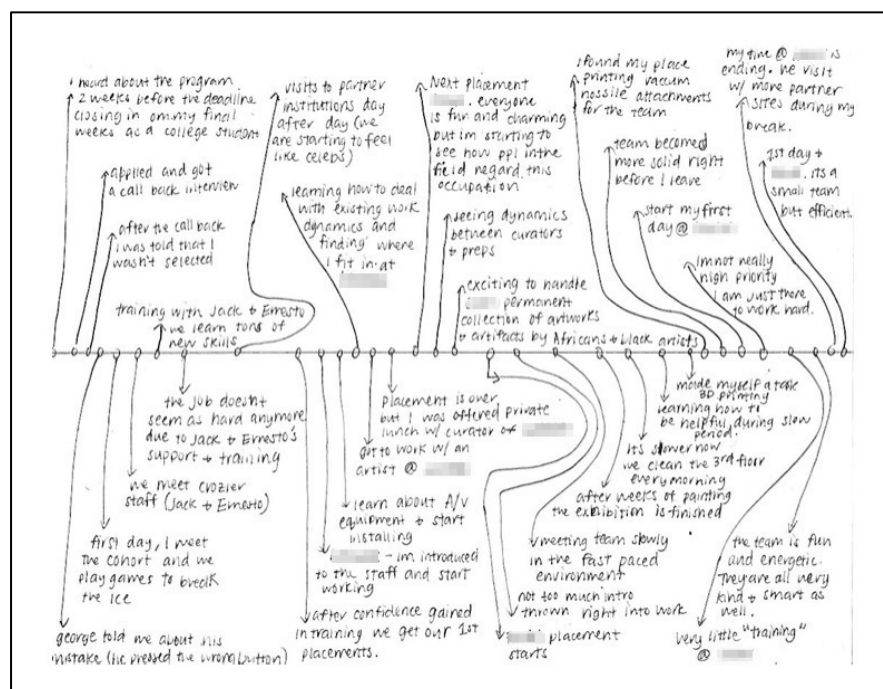 I heard about the program
2 weeks before the deadline
closing in on my final
weeks as a college student
applied and got
a call back interview
after the call back
I was told that I
wasn't selected
training with Jack + Ernesto
we learn tons of
new skills
visits to partner
institutions day
after day (we
are starting to feel
like celebs)
learning how to deal
with existing work
dynamics and
finding where
I fit in at
Next placement
everyone
is fun and charming
but im starting to
see how ppl in the
field regard this
occupation
seeing dynamics
between curators
+ preps
exciting to handle
permanent
collection of artworks
+ artifacts by Africans + black artists
I found my place
printing vaccum
nossile attachments
for the team
team becomed
more solid right
before I leave
start my first
day @
im not really
high priority
I am just there
to work hard.
my time @ is
ending. we visit
w/ more partner
sites during my
break.
1st day +
its a
small team
but efficient.
the job doesnt
seem as hard anymore
due to Jack + Ernesto's
support + training
we meet crozier
staff (Jack + Ernesto)
first day, I meet
the cohort and we
play games to break
the ice
george told me about his
mistake (he pressed the wrong button)
placement is over
but I was offered private
lunch w/ curator of
got to work w/ an
artist @
learn about A/V
equipment + start
installing
- im introduced
to the staff and start
working
after confidence gained
in training we get our 1st
placements.
made myself a task
3D printing
learning how to
be helpful during slow
period.
It's slower now
we clean the 3rd floor
every morning
after weeks of painting
the exhibition is finished
meeting team slowly
in the fast paced
environment
not too much intro
thrown right into work
placement
starts
the team is fun
and energetic.
They are all very
kind + smart as
well.
very little "training"
@